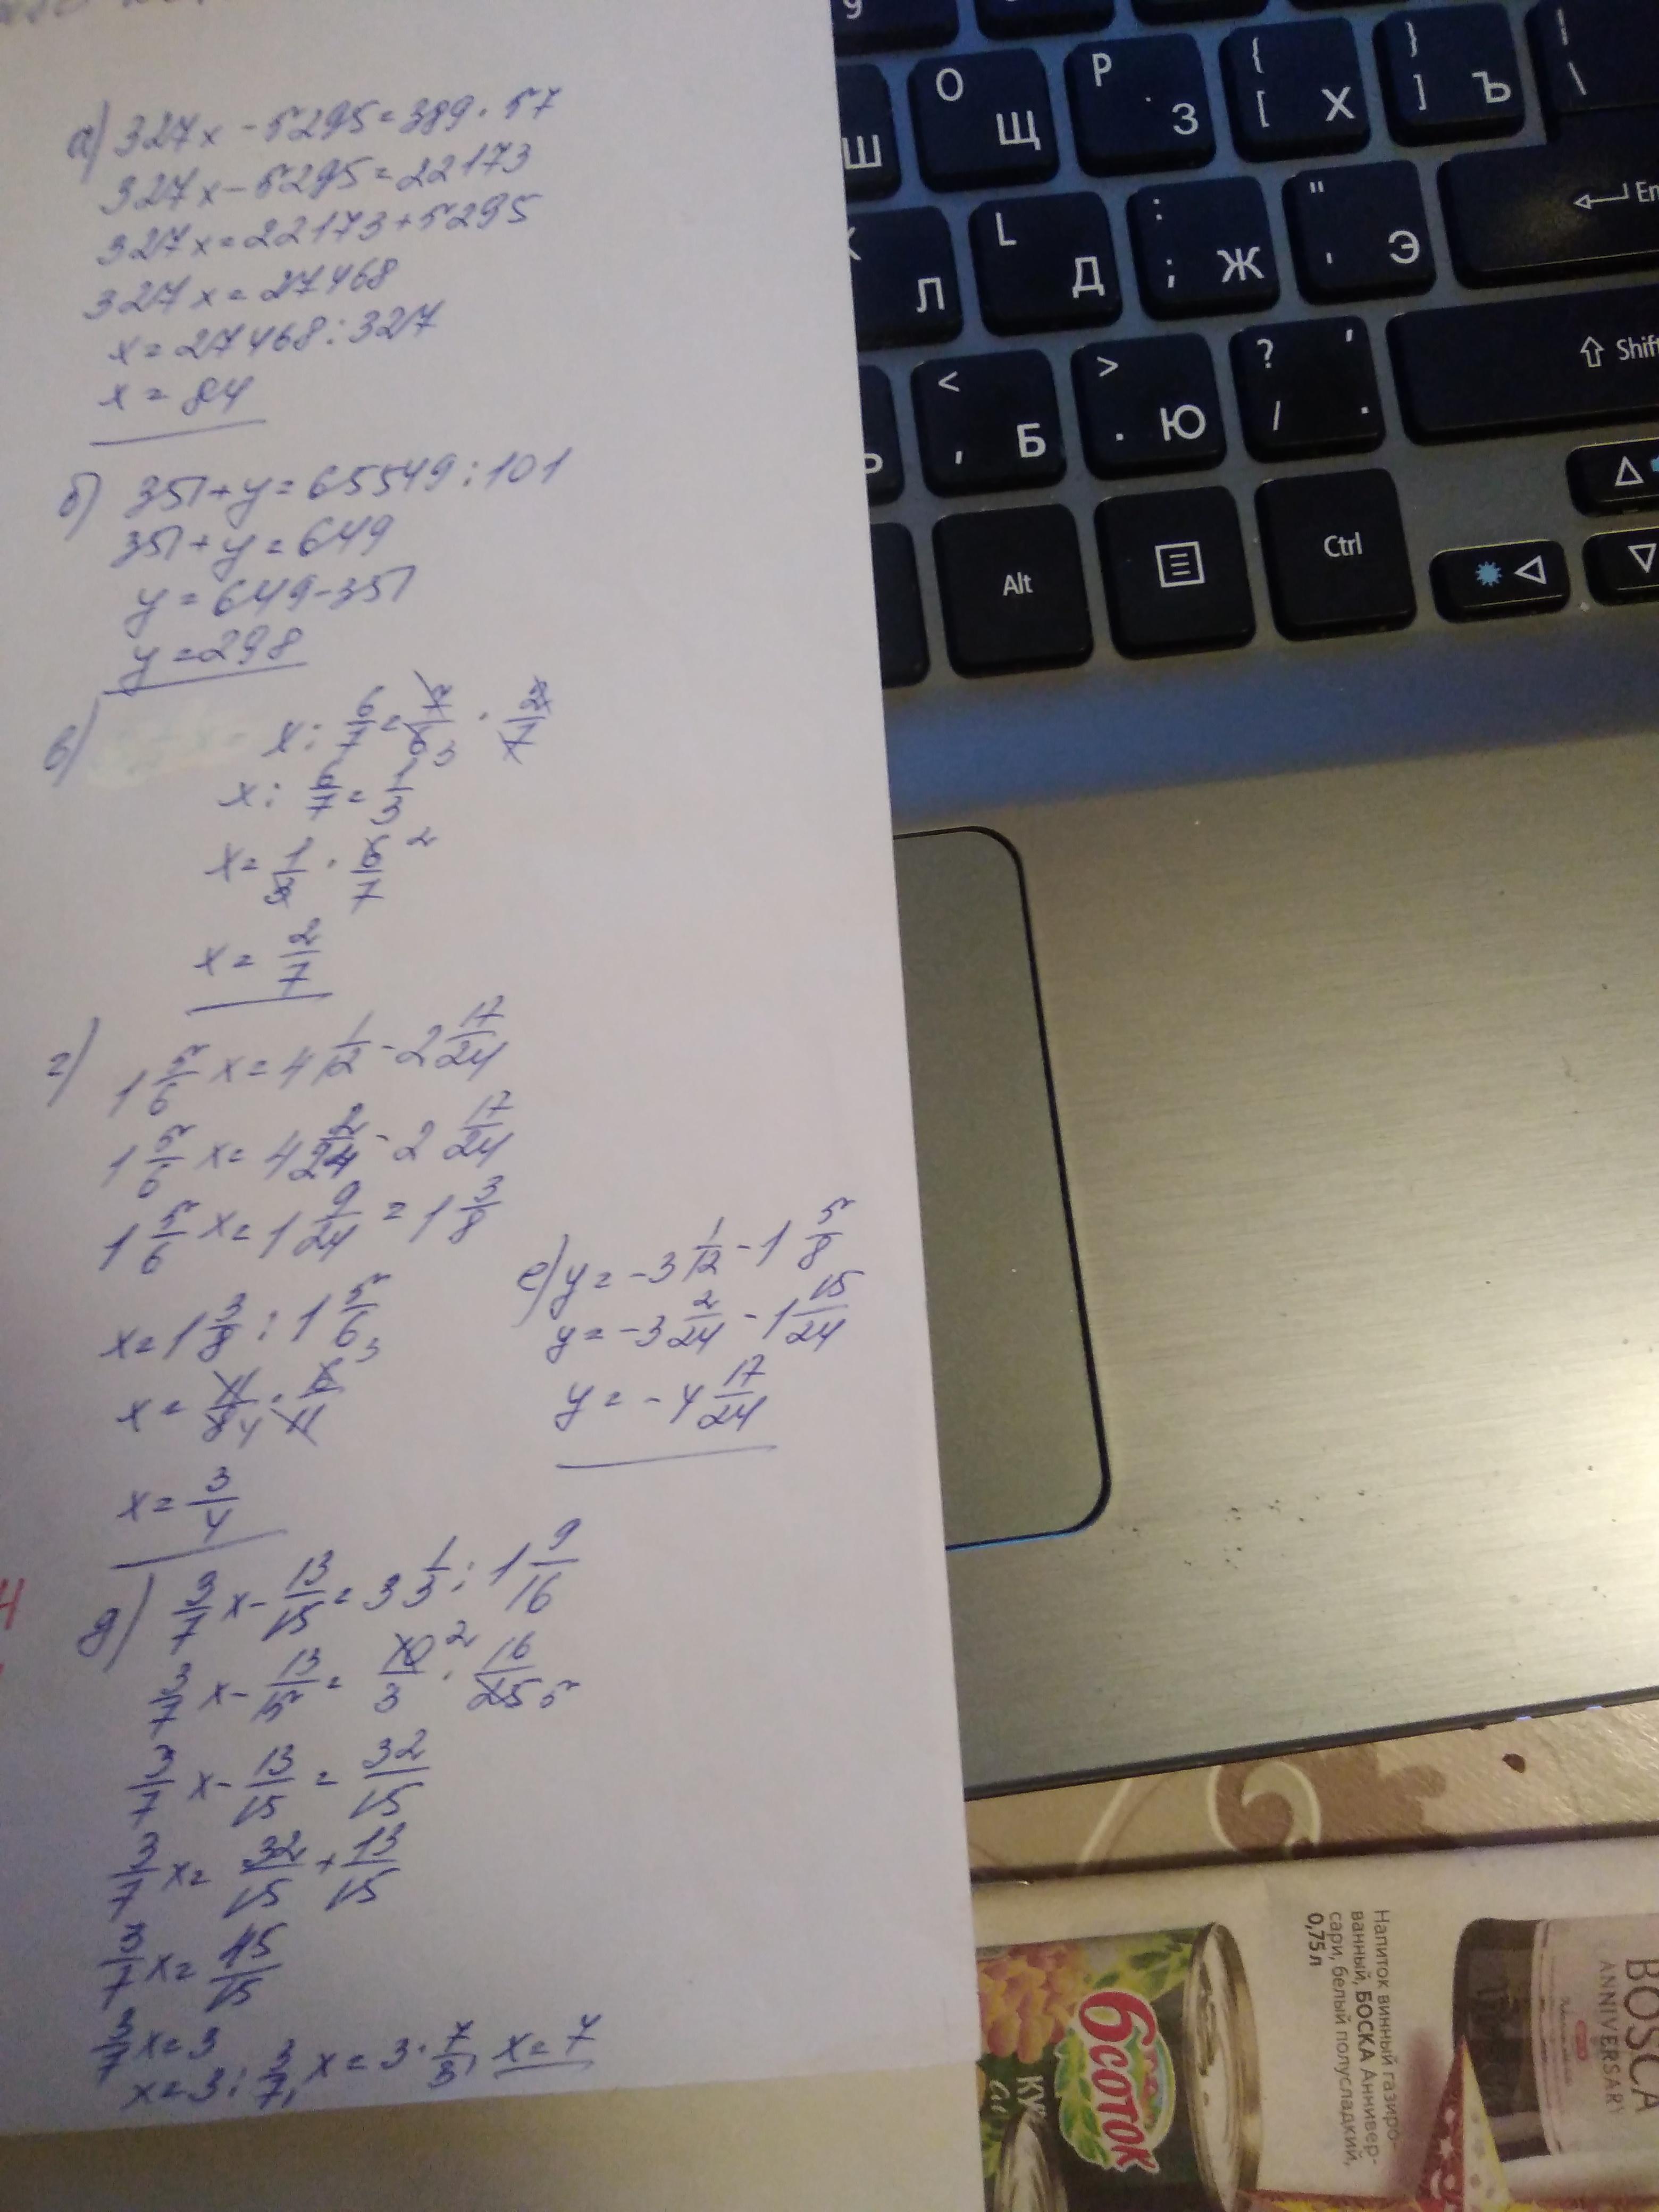 а) 327x - 5295 = 389 · 57
327x - 5295 = 22173
327x = 22173 + 5295
327x = 27468
x = 27468 : 327
x = 84
б) 351 + y = 65549 : 101
351 + y = 649
y = 649 - 351
y = 298
в) x : 6/7 = 7/6 3 · 2/7
x : 6/7 = 1/3
x = 1/3 · 6/7 2
x = 2/7
г) 1 5/6 x = 4 1/12 - 2 17/24
1 5/6 x = 4 2/24 - 2 17/24
1 5/6 x = 1 9/24 = 1 3/8
x = 1 3/8 : 1 5/6
x = 11/8 4 · 6/11 3
x = 3/4
е) y = -3 1/12 - 1 5/8
y = -3 2/24 - 1 15/24
y = -4 17/24
д) 3/7 x - 13/15 = 3 1/3 : 1 9/16
3/7 x - 13/15 = 10/3 2 · 16/25 5
3/7 x - 13/15 = 32/15
3/7 x = 32/15 + 13/15
3/7 x = 45/15
3/7 x = 3
x = 3 : 3/7, x = 3 · 7/3, x = 7
Ш
O Щ
P З
{ [ Х
} ] Ъ
| \
Л
L Д
: ; Ж
" ' Э
En
< , Б
> . Ю
? / , .
Shift
Alt
Ctrl
6 соток
Напиток винный газиро-
ванный, БОСКА Анниверсари, белый полусладкий,
0,75 л
BOSCA
ANNIVERSARY